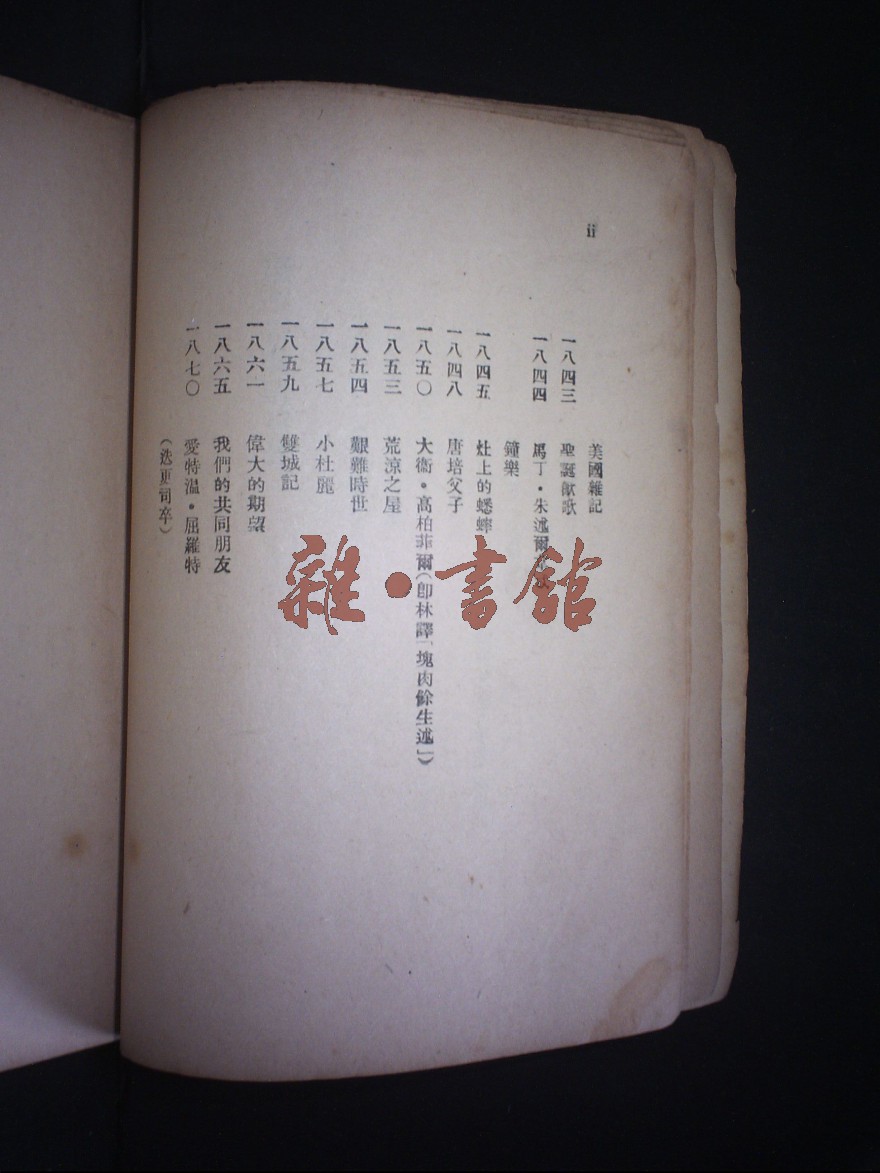 ii
美國雜記
一八四三 聖誕歡歌
一八四四 馬丁・朱述爾
鐘樂
一八四五 灶上的蟋蟀
一八四八 唐培父子
一八五〇 大衞・高柏菲爾(卽林譯「塊肉餘生述」)
一八五三 荒涼之屋
一八五四 艱難時世
一八五七 小杜麗
一八五九 雙城記
一八六一 偉大的期望
一八六五 我們的共同朋友
一八七〇 愛特溫・屈羅特
(迭更司卒)
雜・書館